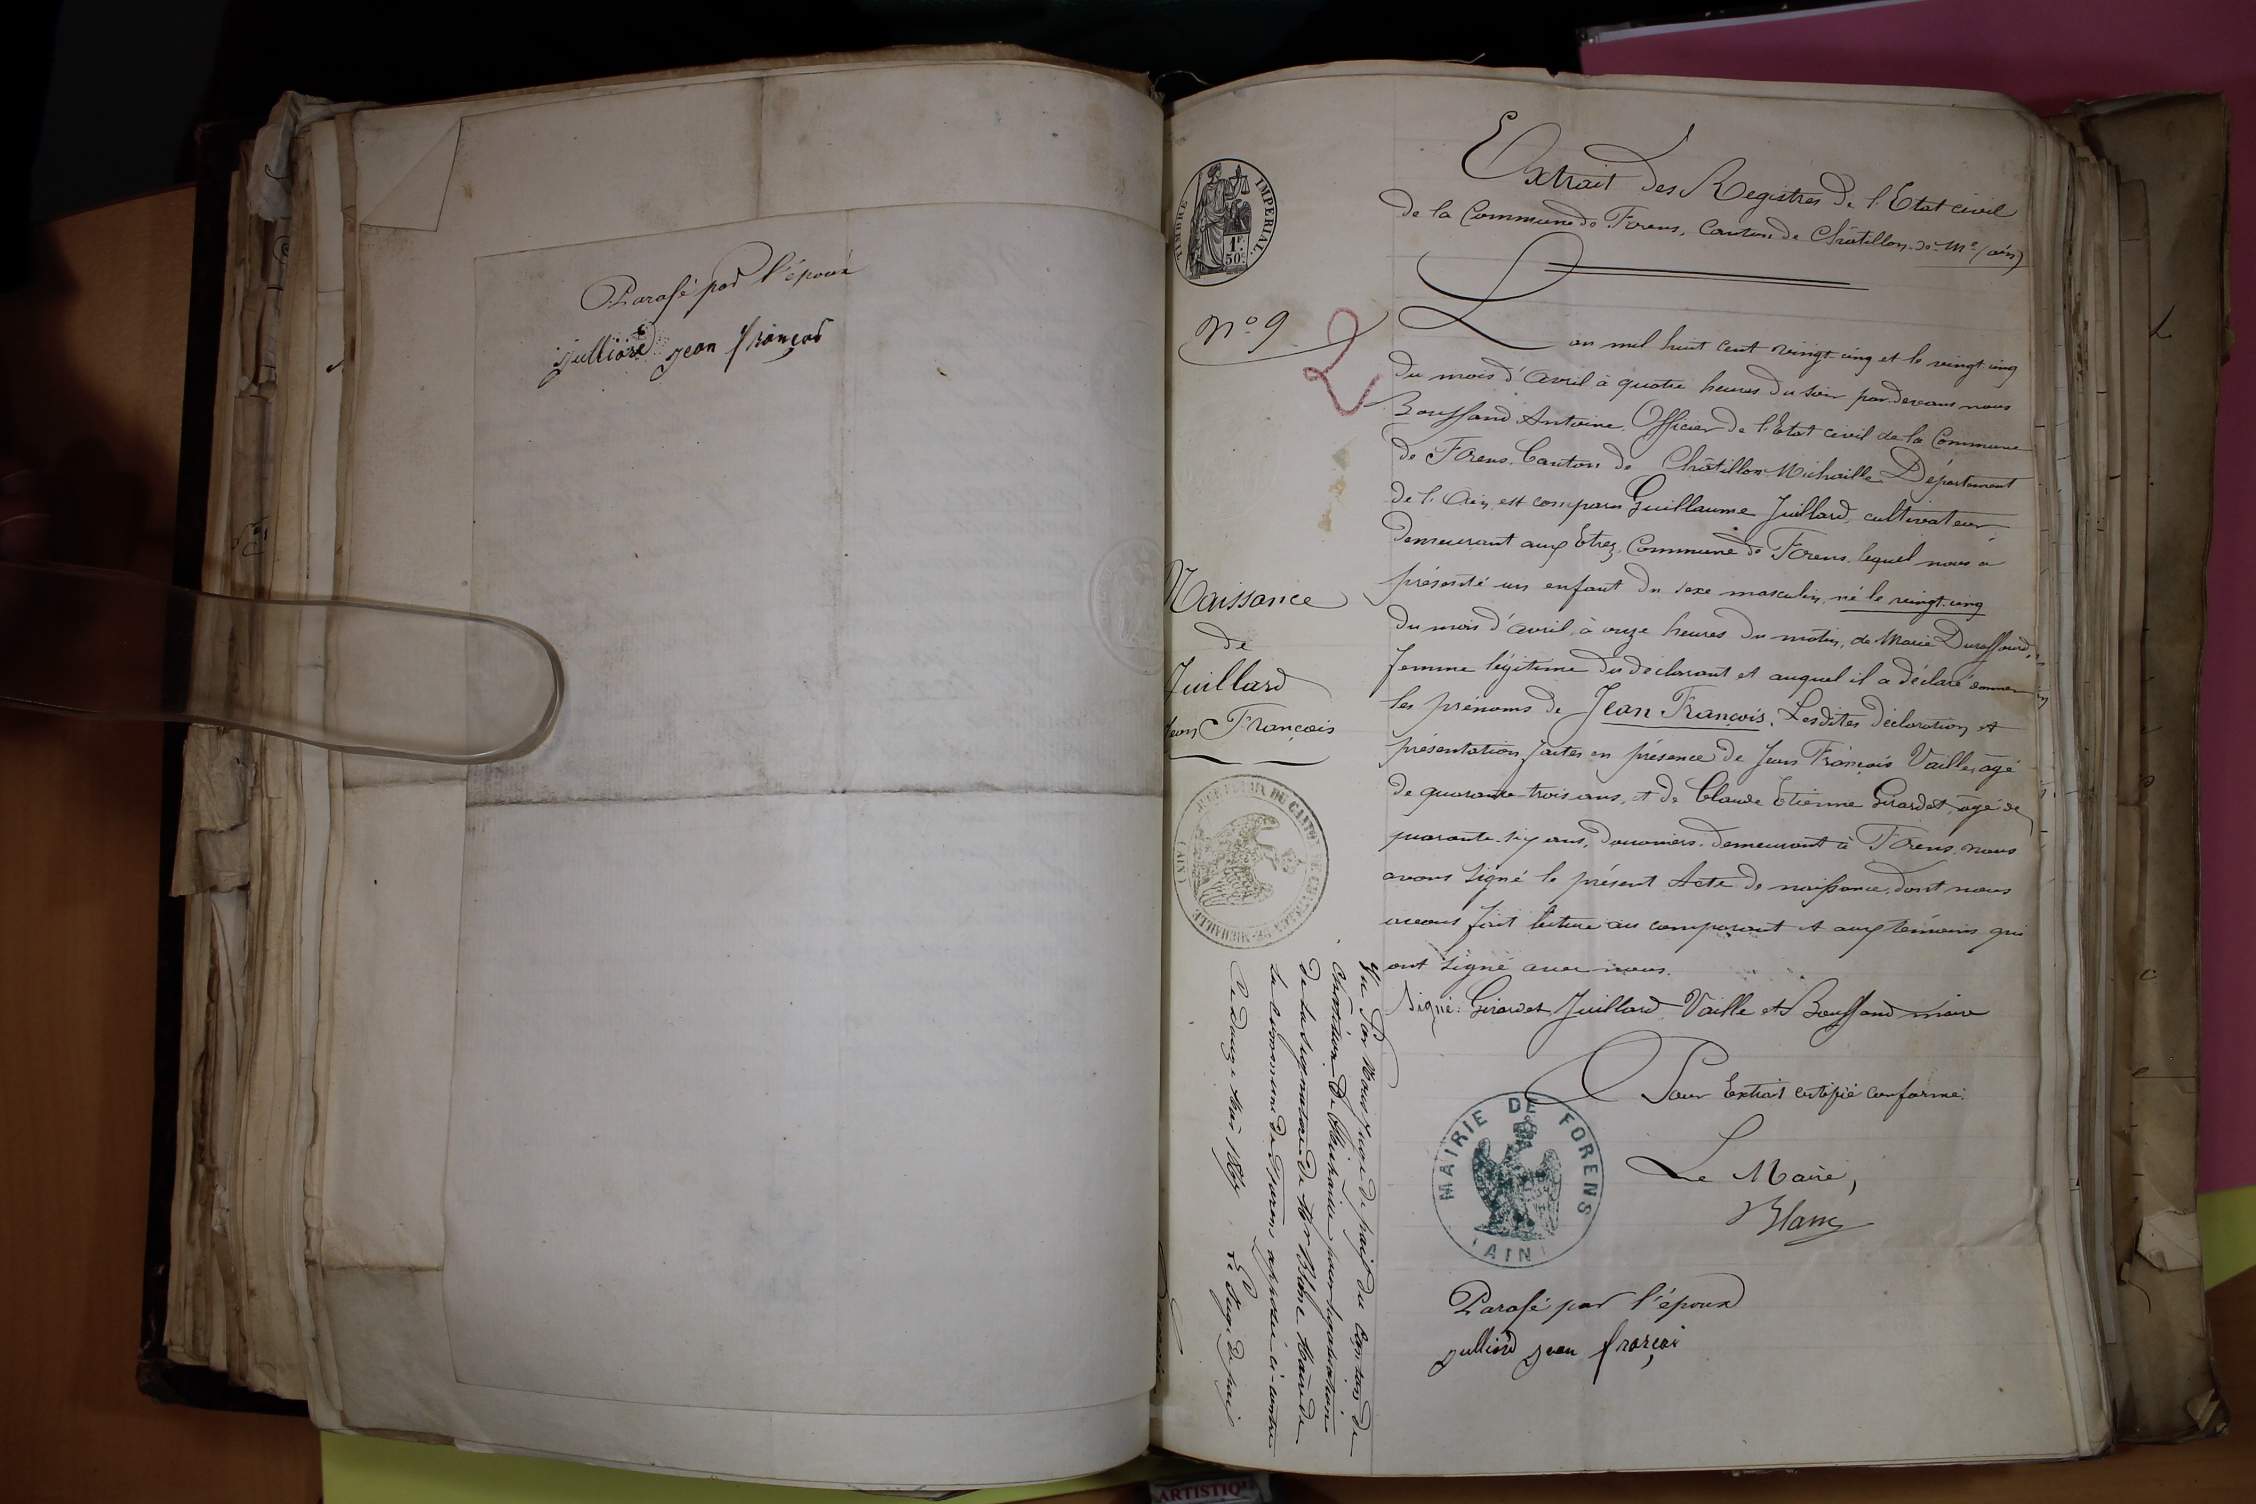 Parafé par l'époux
julliard jean françois
TIMBRE IMPERIAL
1F.
50c.
N° 9
2
Extrait des Registres de l'Etat civil
de la Commune de Forens, Canton de Châtillon-de-Mle (Ain)
L'an mil huit cent vingt-cinq et le vingt-cinq
du mois d'avril à quatre heures du soir par-devant nous
Bouffand Antoine, Officier de l'Etat civil de la Commune
de Forens, Canton de Châtillon-Michaille Département
de l'Ain, est comparu Guillaume Juillard, cultivateur
demeurant aux Etrez, Commune de Forens, lequel nous a
présenté un enfant du sexe masculin, né le vingt-cinq
du mois d'avril, à onze heures du matin, de Marie Duraffourd,
femme légitime du déclarant et auquel il a déclaré donner
les prénoms de Jean François. Lesdites déclaration et
présentation faites en présence de Jean François Vaille, âgé
de quarante-trois ans, et de Claude Etienne Girardet, âgé de
quarante-six ans, douaniers, demeurant à Forens, nous
avons signé le présent Acte de naissance, dont nous
avons fait lecture au comparant et aux témoins qui
ont signé avec nous.
Signé: Girardet, Juillard, Vaille et Bouffand maire
Pour Extrait certifié conforme:
Le Maire,
Blanc
MAIRIE DE FORENS
AIN
Parafé par l'époux
julliard jean françoi
Naissance
de
Juillard
Jean François
DU CANTON DE CHATILLON-DE-MICHAILLE
(AIN)
Vu Par Nous juge de paix du canton de
Châtillon de Michaille pour légalisation
de la signature de Mr Blanc Maire de
la Commune de Forens apposée ci-contre
Le Juge de paix
ARTISTIQU